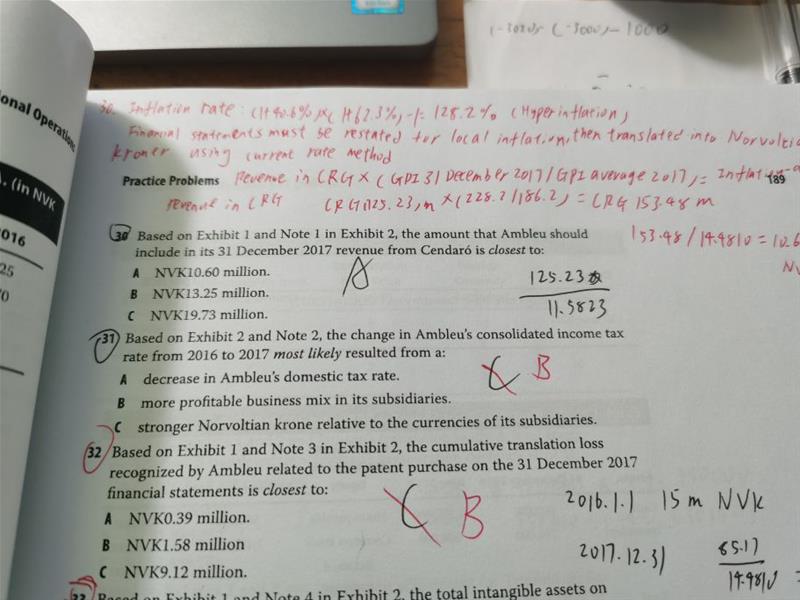 (-3000)-1000
30. Inflation rate: (1+40.6%)x(1+62.3%)-1=128.2% (Hyperinflation)
Financial statements must be restated for local inflation, then translated into Norvoltic
kroner using current rate method
Practice Problems Revenue in CRG x (GPI 31 December 2017/GPI average 2017)=
189
revenue in CRG CRG 125.23m x (228.2/186.2) = CRG 153.48 m
153.48/14.4810=10.6
onal Operations
. (in NVK
2016
30 Based on Exhibit 1 and Note 1 in Exhibit 2, the amount that Ambleu should
include in its 31 December 2017 revenue from Cendaró is closest to:
A NVK10.60 million.
B NVK13.25 million.
C NVK19.73 million.
A
125.23
11.5823
31 Based on Exhibit 2 and Note 2, the change in Ambleu's consolidated income tax
rate from 2016 to 2017 most likely resulted from a:
A decrease in Ambleu's domestic tax rate.
B more profitable business mix in its subsidiaries.
C stronger Norvoltian krone relative to the currencies of its subsidiaries.
C B
32 Based on Exhibit 1 and Note 3 in Exhibit 2, the cumulative translation loss
recognized by Ambleu related to the patent purchase on the 31 December 2017
financial statements is closest to:
A NVK0.39 million.
B NVK1.58 million
C NVK9.12 million.
C B
2016.1.1 15 m NVK
2017.12.31 85.17
14.4810
33 Based on Exhibit 1 and Note 4 in Exhibit 2, the total intangible assets on